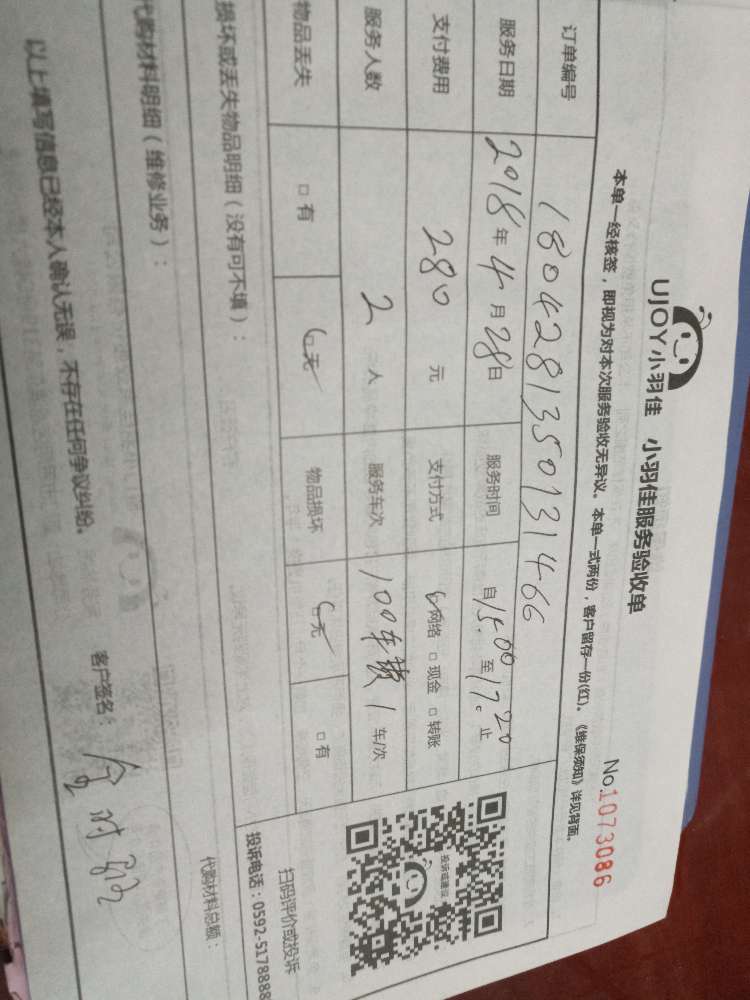 UJOY小羽佳 小羽佳服务验收单
No.1073086
本单一经核签，即视为对本次服务验收无异议。本单一式两份，客户留存一份(红)。《维保须知》详见背面。
订单编号 1804281350131466
服务日期 2018年4月28日 服务时间 自15:00至17:20止
支付费用 280元 支付方式 网络 □现金 □转账
服务人数 2人 服务车次 100车费1车/次
物品丢失 □有 无 物品损坏 无 □有
投诉或建议
扫码评价或投诉
投诉电话：0592-5178888
损坏或丢失物品明细（没有可不填）：
代购材料明细（维修业务）： 代购材料总额：
以上填写信息已经本人确认无误，不存在任何争议纠纷。 客户签名：